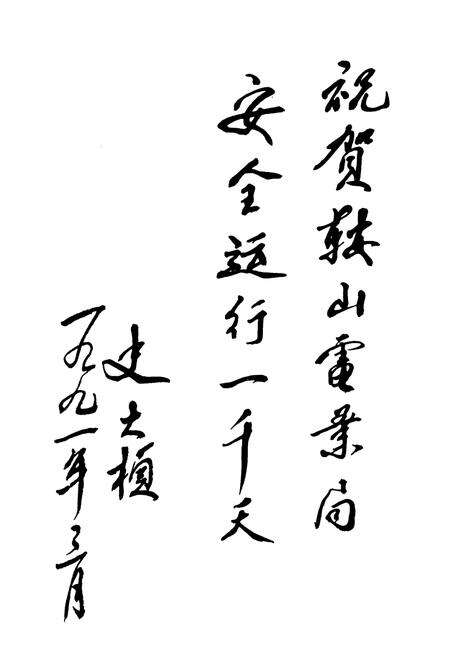 祝賀鞍山電業局
安全运行一千天
史大楨
一九九一年三月